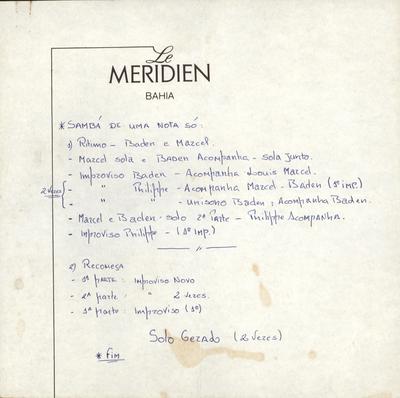 Le
MERIDIEN
BAHIA
* SAMBÁ DE UMA NOTA SÓ:
1) Ritmo - Baden e Marcel.
- Marcel sola e Baden Acompanha - sola junto.
- Improviso Baden - Acompanha Louis Marcel.
2 vezes { - " Philippe - Acompanha Marcel - Baden (1º imp.)
- " " - unisono Baden, Acompanha Baden.
- Marcel e Baden - solo 2ª Parte - Philippe Acompanha.
- Improviso Philippe - (1º Imp.)
- // -
2) Recomeça
- 1ª parte: Improviso Novo
- 2ª parte: " 2 vezes.
- 1ª parte: Improviso (1º)
Solo Gerado (2 vezes)
* Fim